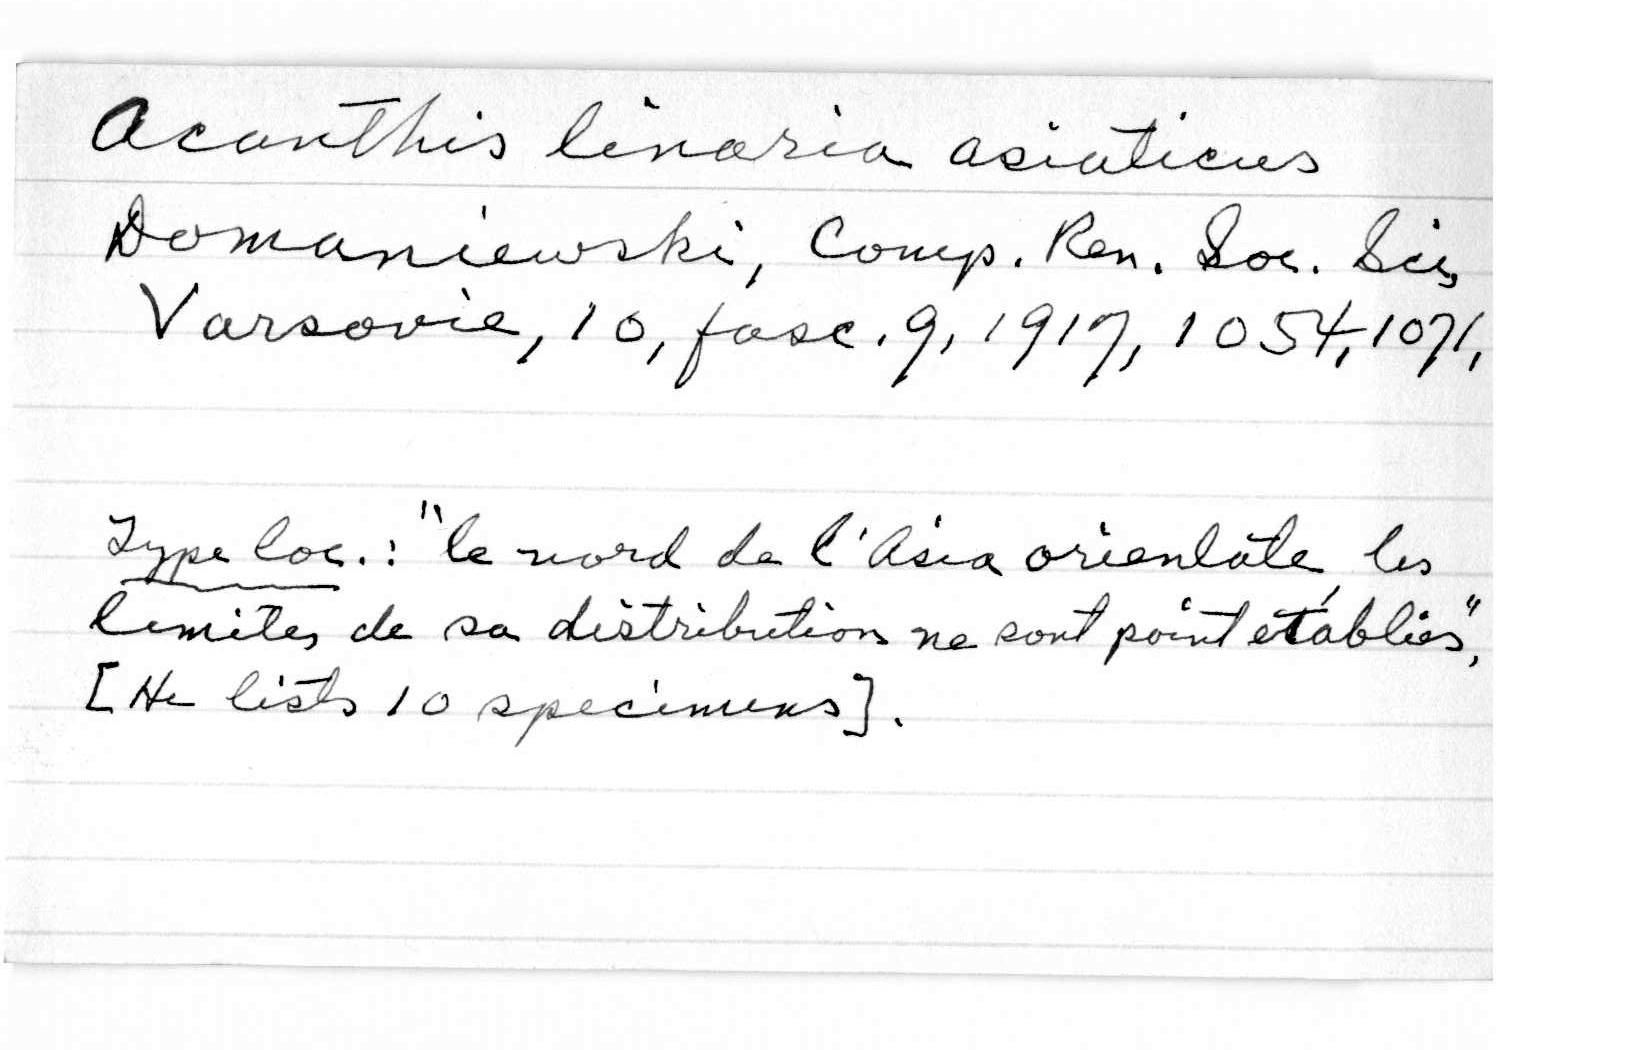 Acanthis linaria asiaticus
Domaniewski, Comp. Ren. Soc. Sci,
Varsovie, 10, fasc. 9, 1917, 1054, 1071,
Type loc.: "le nord de l'Asia orientale, les
limites de sa distribution ne sont point établies",
[He lists 10 specimens].